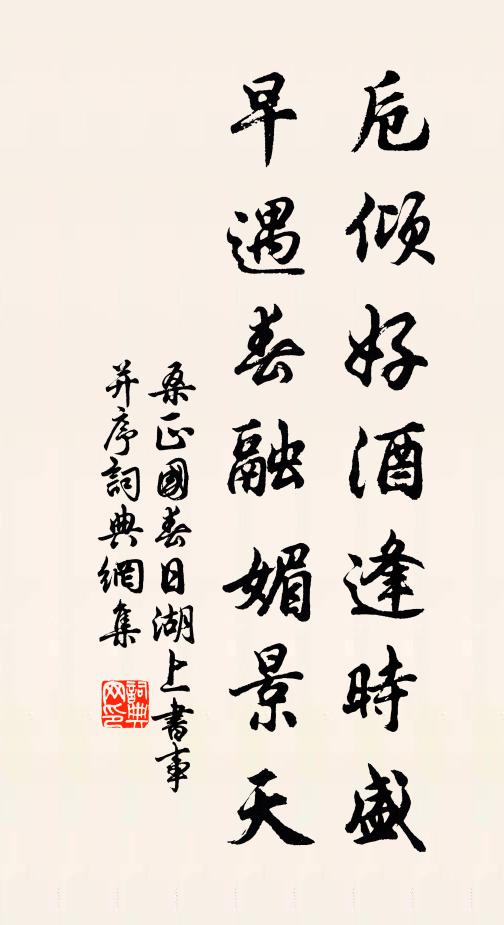 卮傾好酒逢時盛
早遇春融媚景天
桑正國春日湖上書事
并序詞典網集
詞典
网印